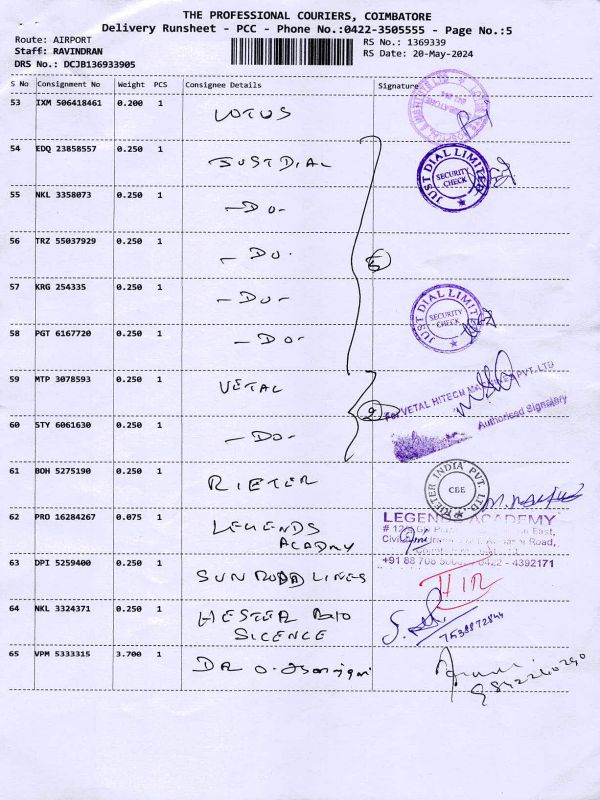 THE PROFESSIONAL COURIERS, COIMBATORE
Delivery Runsheet - PCC - Phone No.:0422-3505555 - Page No.:5
Route: AIRPORT
RS No.: 1369339
Staff: RAVINDRAN
RS Date: 20-May-2024
DRS No.: DCJB136933905
S No Consignment No Weight PCS Consignee Details Signature
53 IXM 506418461 0.200 1 LOTUS
54 EDQ 23858557 0.250 1 JUSTDIAL
JUST DIAL LIMITED
SECURITY CHECK
55 NKL 3358073 0.250 1 -DO-
56 TRZ 55037929 0.250 1 -DO-
5
57 KRG 254335 0.250 1 -DO-
JUST DIAL LIMITED
SECURITY CHECK
58 PGT 6167720 0.250 1 -DO-
59 MTP 3078593 0.250 1 VETAL
For VETAL HITECH MACHINES PVT. LTD
2
Authorised Signatory
60 STY 6061630 0.250 1 -DO-
61 BOH 5275190 0.250 1 RIETER
RIETER INDIA PVT. LTD
CBE
62 PRO 16284267 0.075 1 LEGENDS
ACADMY
LEGENDS ACADEMY
63 DPI 5259400 0.250 1 SUN ROAD LINES
64 NKL 3324371 0.250 1 HESTER BIO
SICENCE
7538872844
65 VPM 5333315 3.700 1 DR O.
9842240290